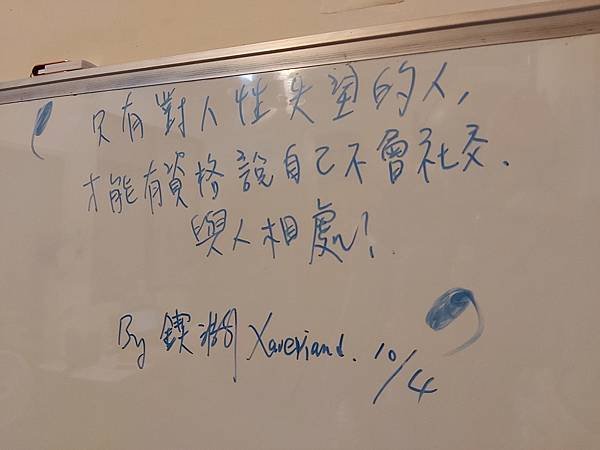 只有對人性失望的人,
才能有資格說自己不會社交.
與人相處!
By 鍥 Xaveriand. 10/4